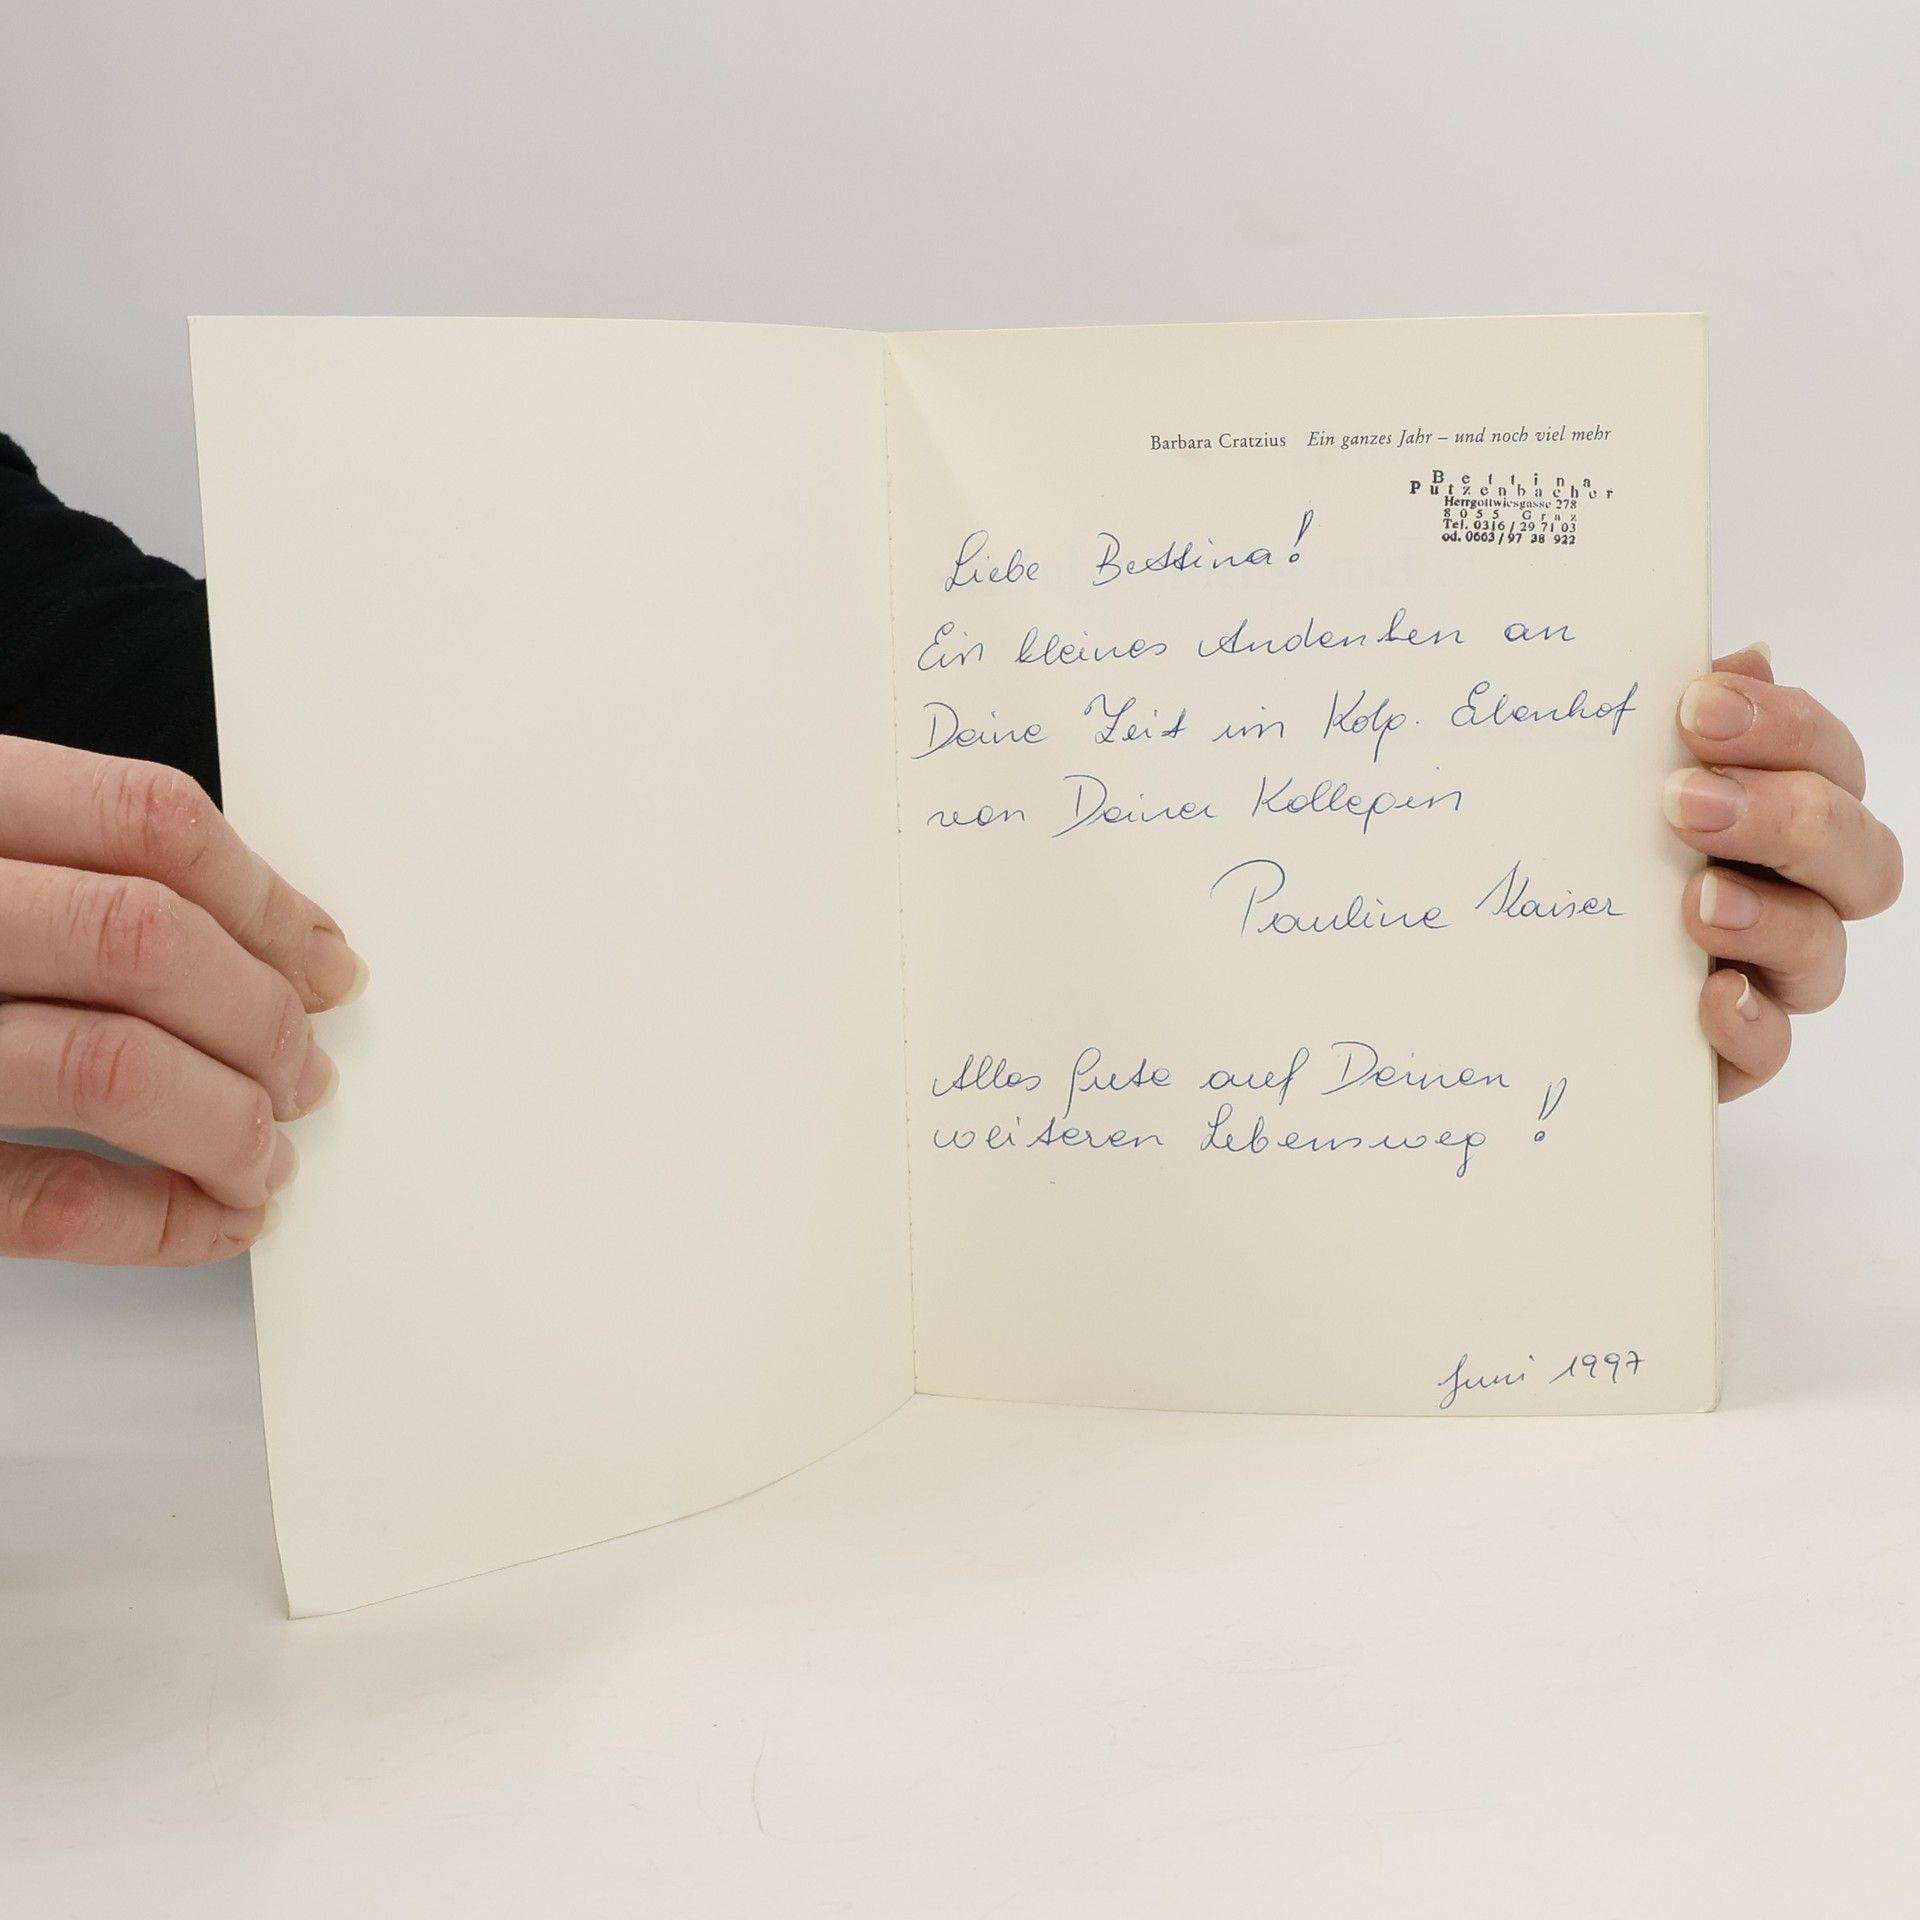 Barbara Cratzius Ein ganzes Jahr – und noch viel mehr
Bettina
Putzenbacher
Herrgottwiesgasse 278
8055 Graz
Tel. 0316/29 71 03
od. 0663/97 38 922
Liebe Bettina!
Ein kleines Andenken an
Deine Zeit im Kolp. Ebenhof
von Deiner Kollegin
Pauline Kaiser
Alles Gute auf Deinen
weiteren Lebensweg!
Juni 1997